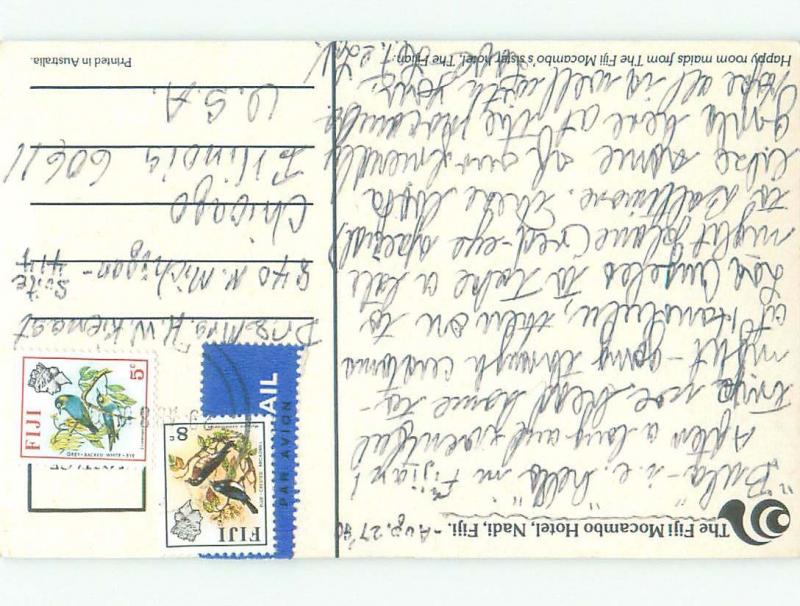 The Fiji Mocambo Hotel, Nadi, Fiji. - Aug. 27 '80
"Bula" - i.e. "hello" in Fijian!
After a long and eventful
trip we head home to-
night - going through customs
at Honolulu, then on to
Los Angeles to take a late
night plane (red-eye special)
to Baltimore. These
like some of our friendly
here at the Mocambo.
Hope all is well with you.
Happy room maids from The Fiji Mocambo's sister hotel, The Fijian.
Printed in Australia.
FIJI
5c
FIJI
8c
PAR AVION
AIL
Drs & Mrs. H. W. Kienast
840 N. Michigan -
Suite
414
Chicago
Illinois 60611
U.S.A.